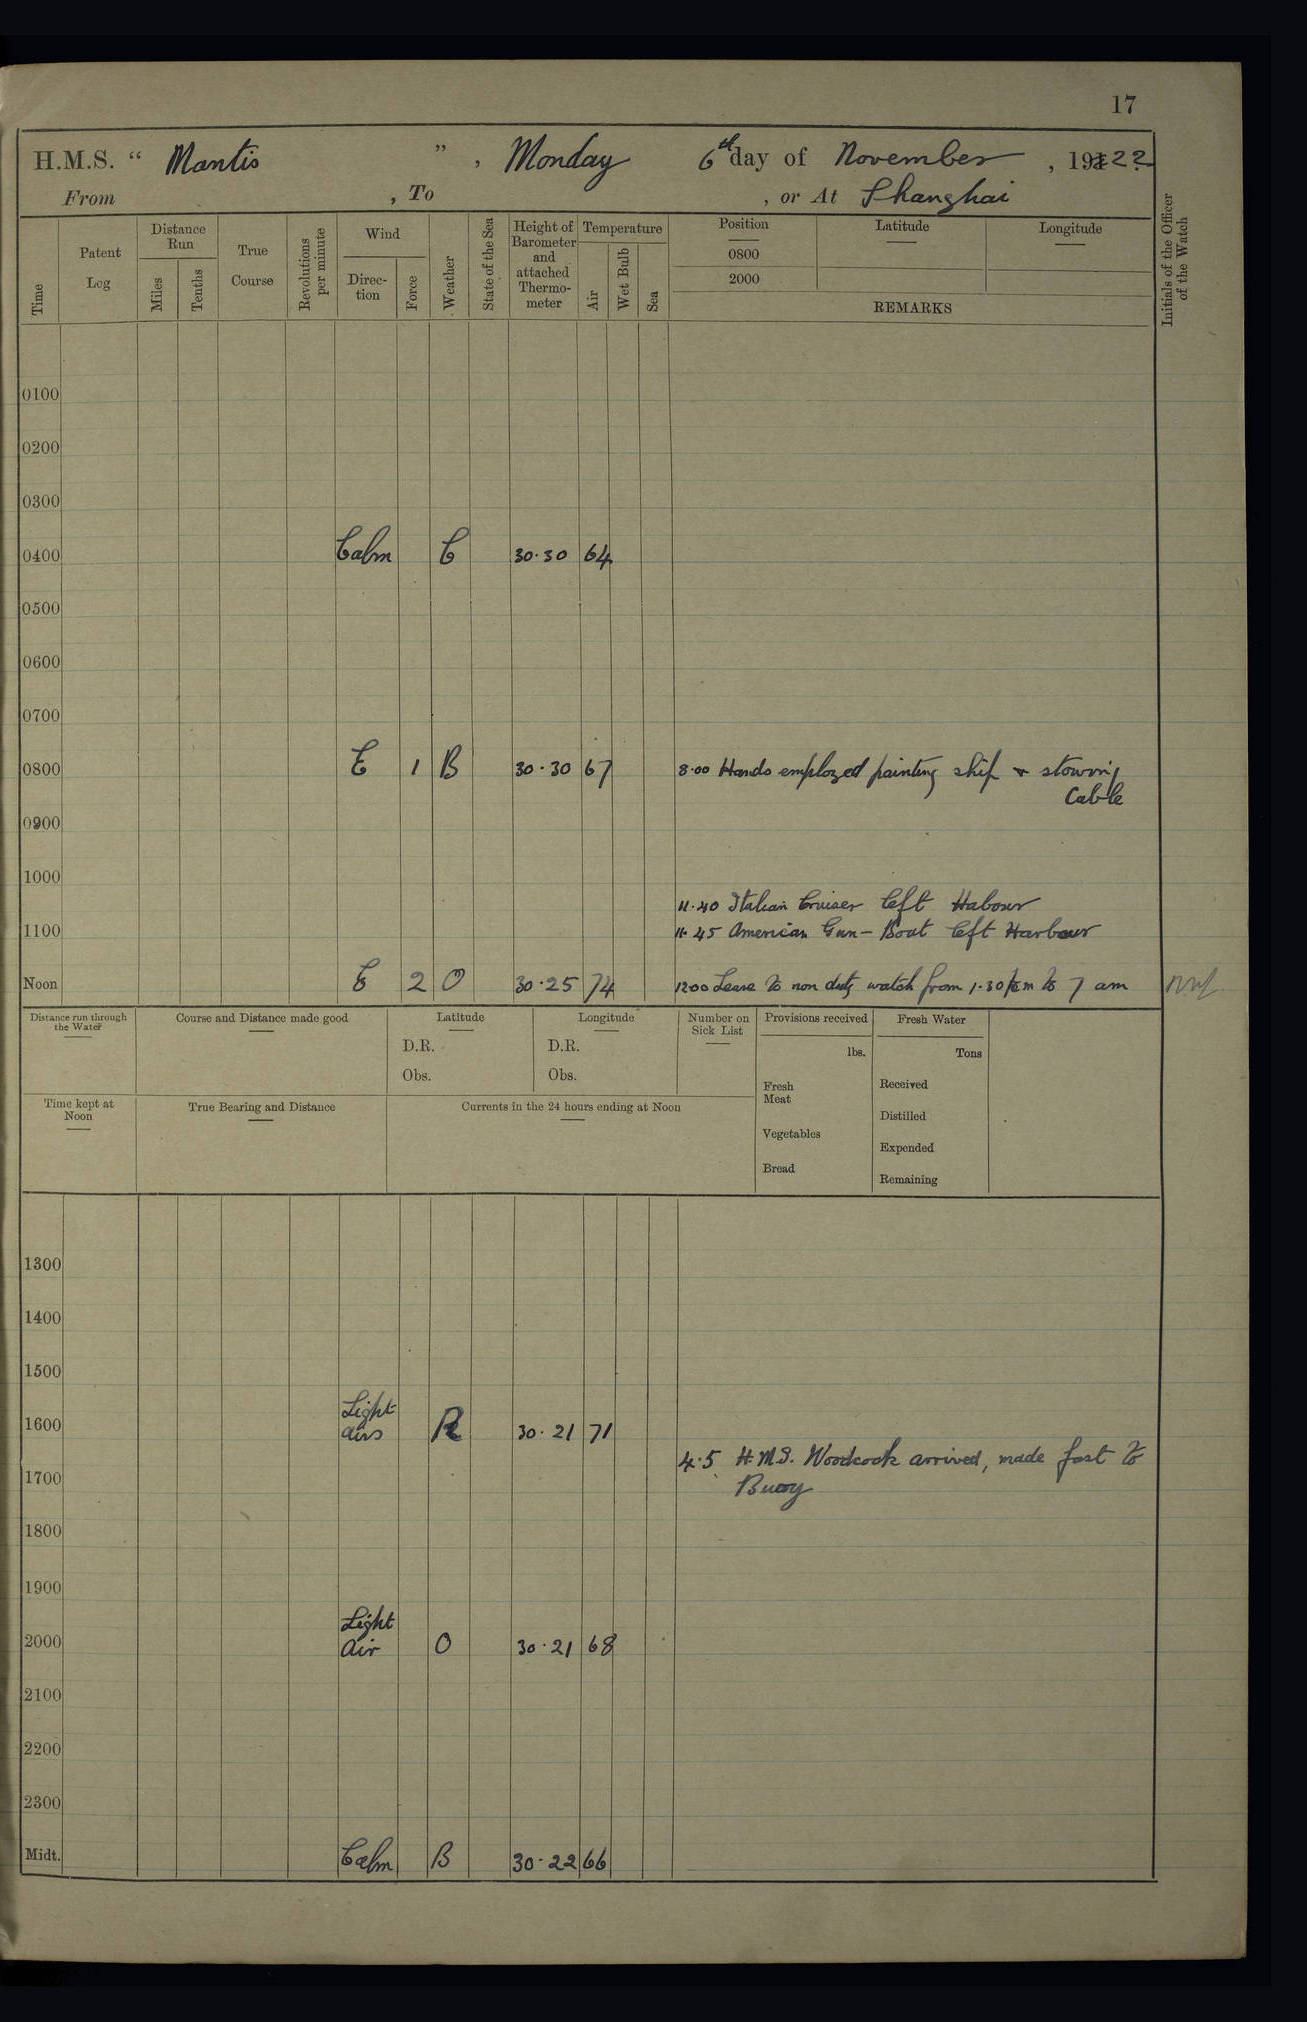 17
H.M.S. “ Mantis ” , Monday 6th day of November , 1922
From , To , or At Shanghai
Time
Patent Log
Distance Run
Miles
Tenths
True Course
Revolutions per minute
Wind
Direc-tion
Force
Weather
State of the Sea
Height of Barometer and attached Thermo-meter
Temperature
Air
Wet Bulb
Sea
Position Latitude Longitude
0800
2000
REMARKS
Initials of the Officer of the Watch
0100
0200
0300
0400 Calm C 30·30 64
0500
0600
0700
0800 E 1 B 30·30 67 8·00 Hands employed painting ship & stowing
Cable
0900
1000
11·40 Italian Cruiser left Habour
1100 11·45 American Gun-Boat left Harbour
Noon E 2 O 30·25 74 1200 Leave to non duty watch from 1·30 pm to 7 am
Distance run through the Water
Course and Distance made good
Latitude
D.R.
Obs.
Longitude
D.R.
Obs.
Number on Sick List
Provisions received
lbs.
Fresh Meat
Vegetables
Bread
Fresh Water
Tons
Received
Distilled
Expended
Remaining
Time kept at Noon
True Bearing and Distance
Currents in the 24 hours ending at Noon
1300
1400
1500
Light
1600 airs R 30·21 71
4·5 H.M.S. Woodcock arrived, made fast to
1700 Buoy
1800
1900
Light
2000 air O 30·21 68
2100
2200
2300
Midt. Calm B 30·22 66